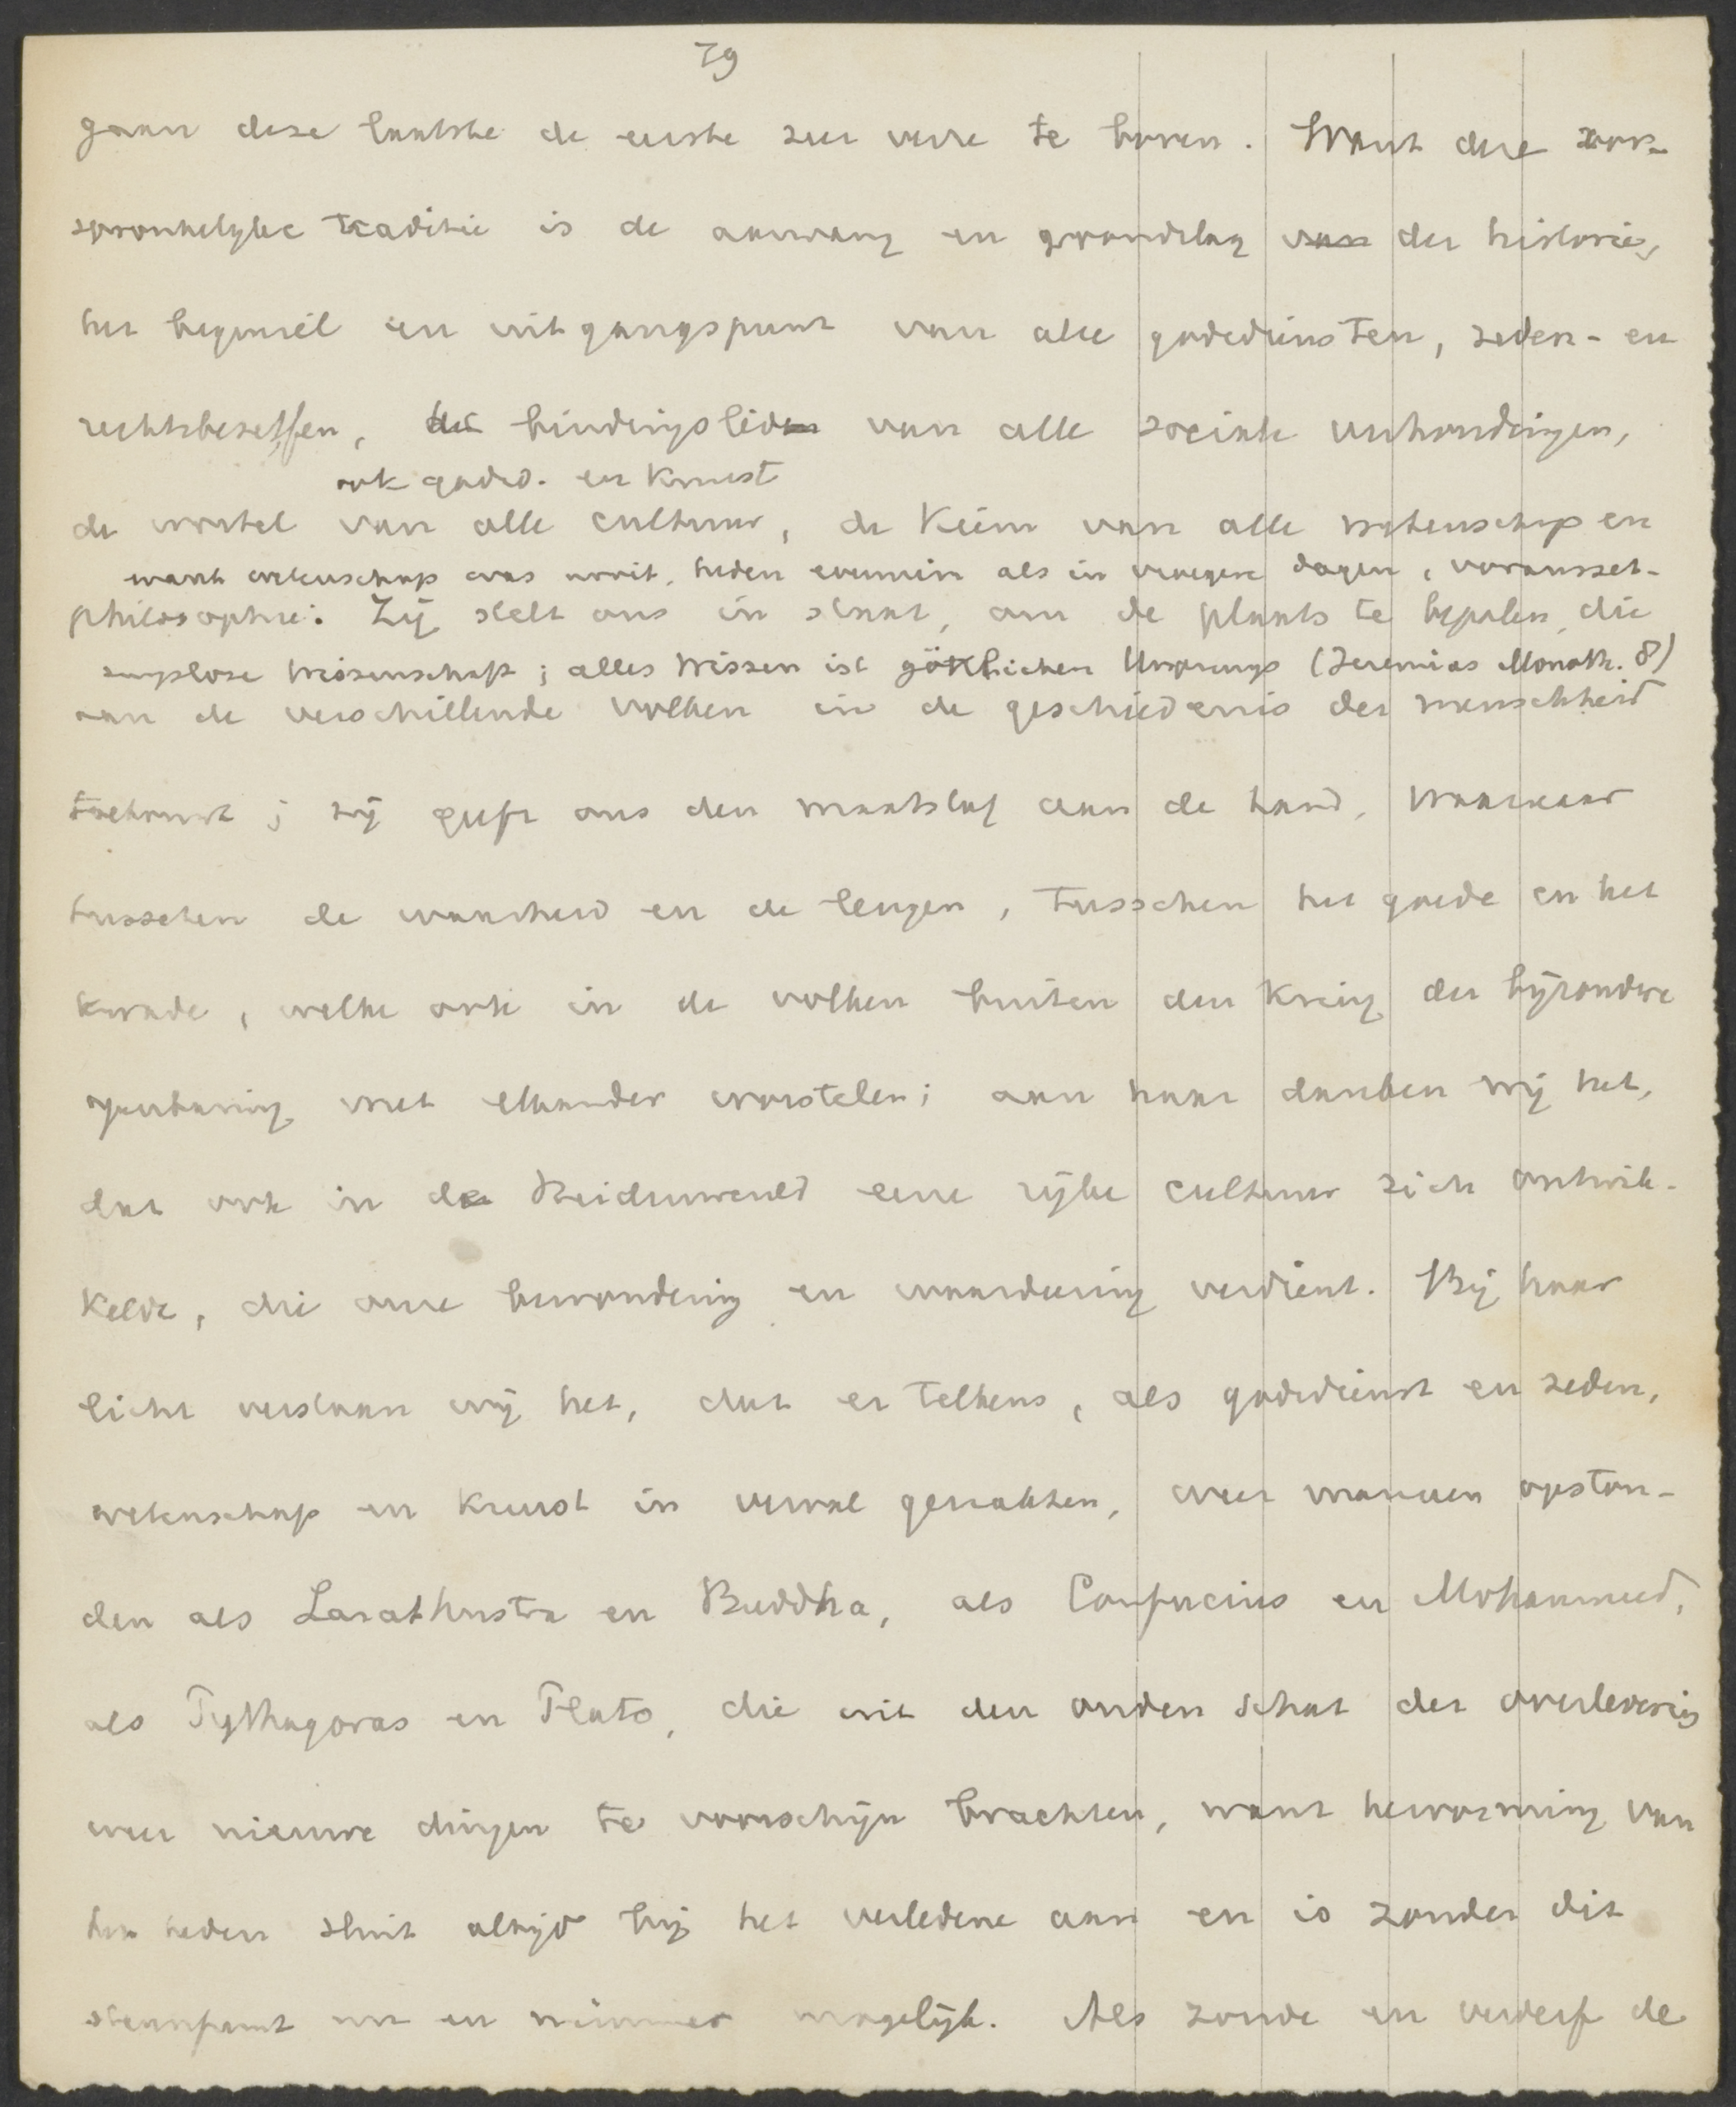 79
gaan deze laatste de eerste zeer verre te boven. Want die oor-
spronkelyke traditie is de aanvang en grondslag der historie,
het beginsel en uitgangspunt van alle godsdiensten, zeden- en
rechtsbeseffen, bindingslid van alle sociale verhoudingen,
ook godsd. en kunst
de wortel van alle cultuur, de kiem van alle wetenschap en
want wetenschap was nooit, heden evenmin als in vroegere dagen, voraussset-
philosophie. Zij stelt ons in staat, om de plaats te bepalen, die
zungslose Wissenschaft; alles Wissen ist göttlichen Ursprungs (Jeremias Monoth. 8)
aan de verschillende volken in de geschiedenis der menschheid
toekomt; zij geeft ons den maatstaf aan de hand, waarnaar
tusschen de waarheid en de leugen, tusschen het goede en het
kwade, welke ook in de volken buiten den kring der bijzondre
openbaring met elkander worstelen; aan haar danken wij het,
dat ook in de Heidenwereld eene rijke cultuur zich ontwik-
kelde, die onze bewondering en waardeering verdient. Bij haar
licht verstaan wij het, dat er telkens, als godsdienst en zeden,
wetenschap en kunst in verval geraakten, weer mannen opston-
den als Zarathustra en Buddha, als Confucius en Mohammed,
als Pythagoras en Plato, die uit den ouden schat der overlevering
weer nieuwe dingen te voorschijn brachten, want hervorming van
het heden sluit altijd bij het verledene aan en is zonder dit
steunpunt nu en nimmer mogelijk. Als zonde en verderf de